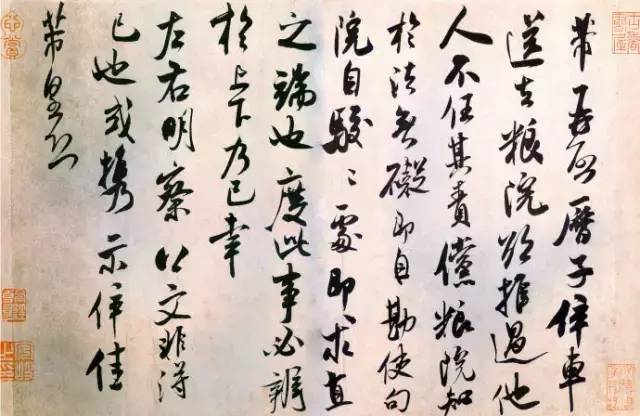 芾再啓曆子倅車
送去粮院欲推過他
人不任其責儻粮院知
於法無礙即自勘使句
院自駮〻處即求直
之端也度此事必辨
於上下乃已幸
左右明察以文非得
已也或攜示倅佳
芾皇恐